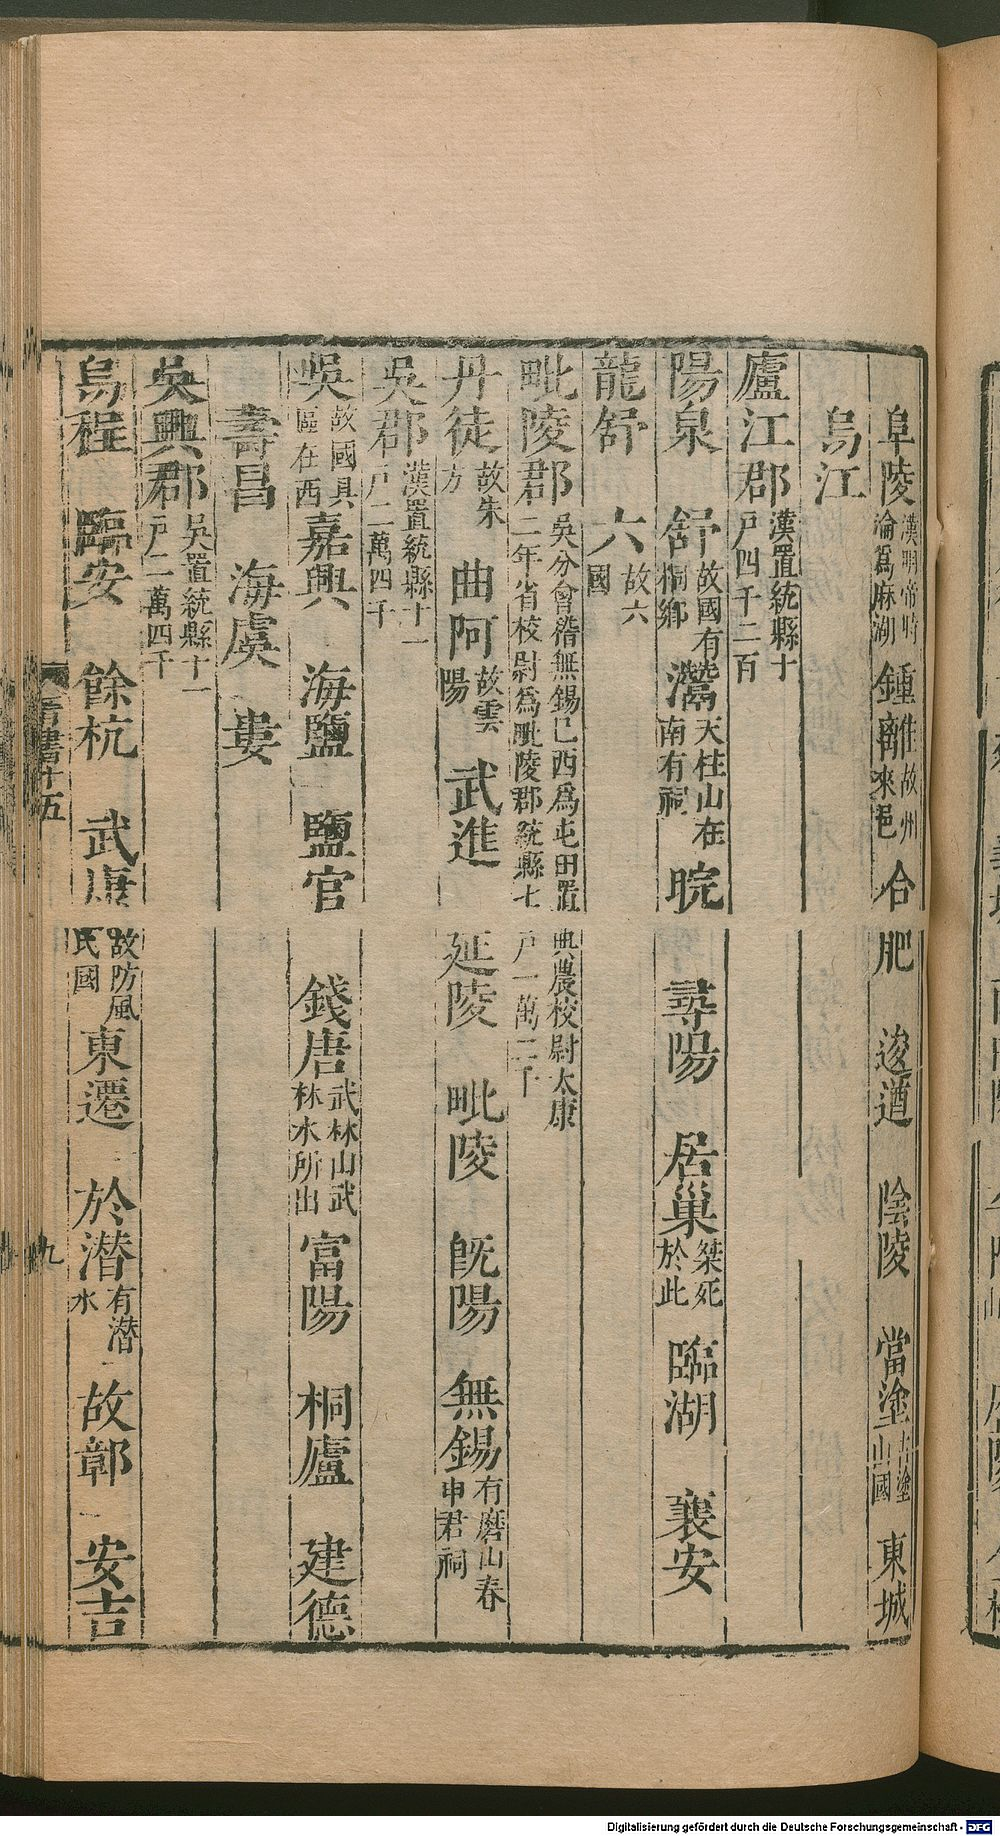 阜陵漢明帝時淪爲麻湖鍾離故州來邑合肥 逡遒 陰陵 當塗古塗山國 東城
烏江
廬江郡漢置統縣十戶四千二百
陽泉 舒故國有桐鄉灊天柱山在南有祠晥 尋陽 居巢桀死於此 臨湖 襄安
龍舒 六故六國
毗陵郡吳分會稽無錫已西爲屯田置典農校尉太康二年省校尉爲毗陵郡統縣七戶一萬二千
丹徒故朱方 曲阿故雲陽 武進 延陵 毗陵 旣陽 無錫有磨山春申君祠
吳郡漢置統縣十一戶二萬四千
吳故國具區在西嘉興 海鹽 鹽官 錢唐武林山武林水所出 富陽 桐廬 建德
壽昌 海虞 婁
吳興郡吳置統縣十一戶二萬四千
烏程 臨安 餘杭 武康故防風氏國東遷 於潛有潛水 故鄣 安吉
晉書十五
九
Digitalisierung gefördert durch die Deutsche Forschungsgemeinschaft - DFG